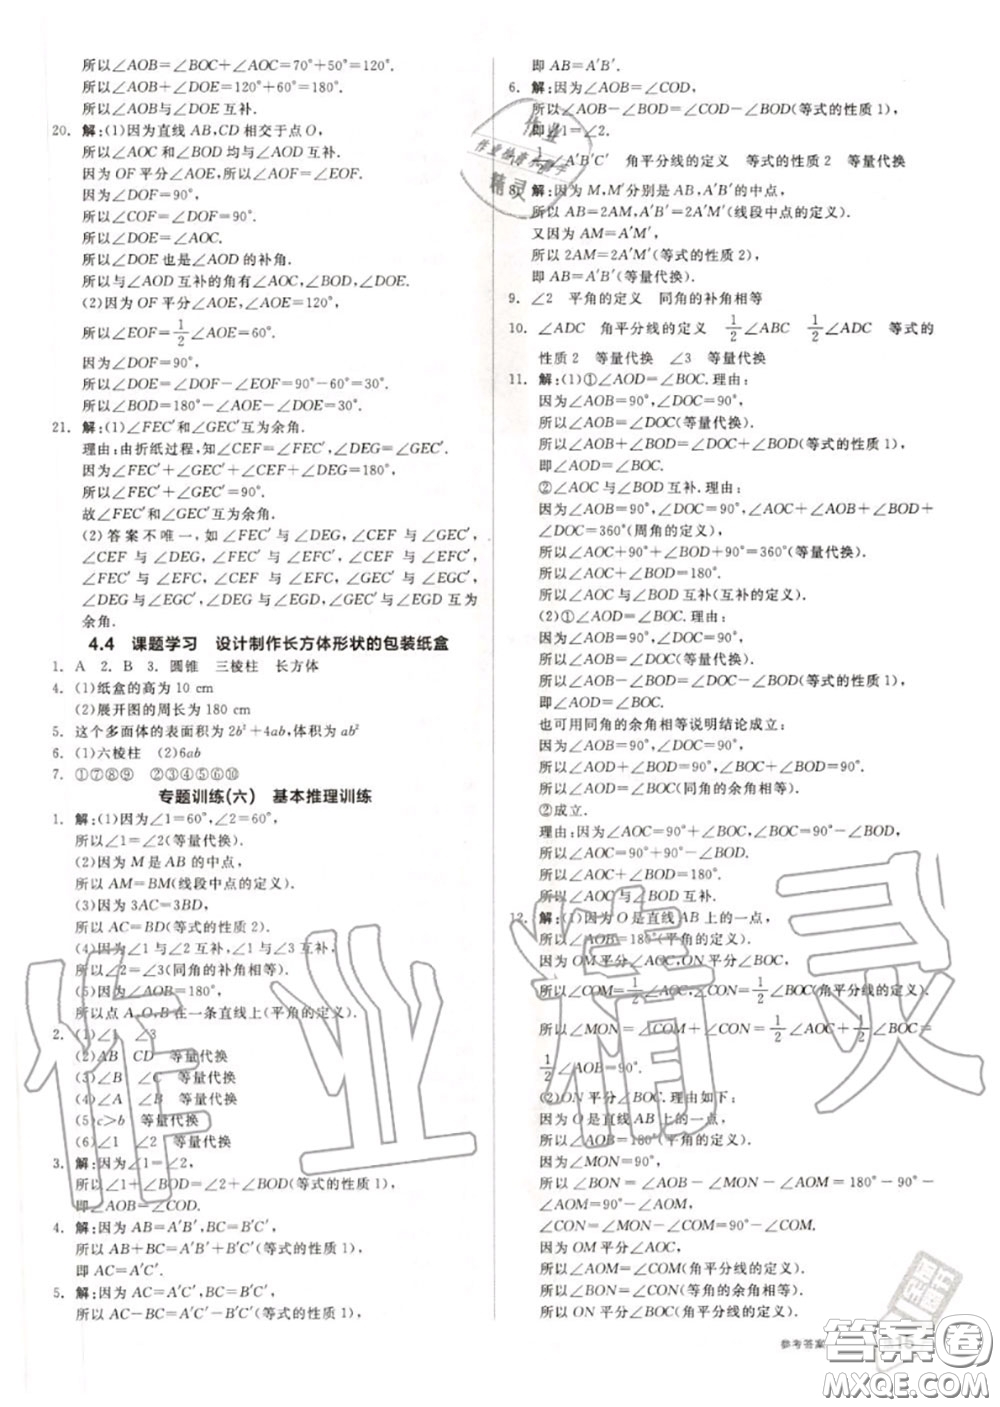 所以∠AOB=∠BOC+∠AOC=70°+50°=120°.
所以∠AOB+∠DOE=120°+60°=180°.
所以∠AOB与∠DOE互补.
20. 解:(1)因为直线AB,CD相交于点O,
所以∠AOC和∠BOD均与∠AOD互补.
因为OF平分∠AOE,所以∠AOF=∠EOF.
因为∠DOF=90°,
所以∠COF=∠DOF=90°.
所以∠DOE=∠AOC.
所以∠DOE也是∠AOD的补角.
所以与∠AOD互补的角有∠AOC,∠BOD,∠DOE.
(2)因为OF平分∠AOE,∠AOE=120°,
所以∠EOF=1/2∠AOE=60°.
因为∠DOF=90°,
所以∠DOE=∠DOF-∠EOF=90°-60°=30°.
所以∠BOD=180°-∠AOE-∠DOE=30°.
21. 解:(1)∠FEC′和∠GEC′互为余角.
理由:由折纸过程,知∠CEF=∠FEC′,∠DEG=∠GEC′.
因为∠FEC′+∠GEC′+∠CEF+∠DEG=180°,
所以∠FEC′+∠GEC′=90°.
故∠FEC′和∠GEC′互为余角.
(2)答案不唯一,如∠FEC′与∠DEG,∠FEC′与∠GEC′,
∠CEF与∠DEG,∠FEC′与∠EFC′,∠CEF与∠GEC′,
∠FEC′与∠EFC,∠CEF与∠EFC,∠GEC′与∠EGC′,
∠DEG与∠EGC′,∠GEC′与∠EGD,∠DEG与∠EGD互为
余角.
4.4 课题学习 设计制作长方体形状的包装纸盒
1. A 2. B 3. 圆锥 三棱柱 长方体
4. (1)纸盒的高为10 cm
(2)展开图的周长为180 cm
5. 这个多面体的表面积为2b²+4ab,体积为ab²
6. (1)六棱柱 (2)6ab
7. ①⑦⑧⑨ ②③④⑤⑥⑩
专题训练(六) 基本推理训练
1. 解:(1)因为∠1=60°,∠2=60°,
所以∠1=∠2(等量代换).
(2)因为M是AB的中点,
所以AM=BM(线段中点的定义).
(3)因为3AC=3BD,
所以AC=BD(等式的性质2).
(4)因为∠1与∠2互补,∠1与∠3互补,
所以∠2=∠3(同角的补角相等).
(5)因为∠AOB=180°,
所以点A,O,B在一条直线上(平角的定义).
2. (1)∠1 ∠3
(2)AB CD 等量代换
(3)∠B ∠C 等量代换
(4)∠A ∠B 等量代换
(5)c>b 等量代换
(6)∠1 ∠2 等量代换
3. 解:因为∠1=∠2,
所以∠1+∠BOD=∠2+∠BOD(等式的性质1),
即∠AOB=∠COD.
4. 解:因为AB=A′B′,BC=B′C′,
所以AB+BC=A′B′+B′C′(等式的性质1),
即AC=A′C′.
5. 解:因为AC=A′C′,BC=B′C′,
所以AC-BC=A′C′-B′C′(等式的性质1),
即AB=A′B′.
6. 解:因为∠AOB=∠COD,
所以∠AOB-∠BOD=∠COD-∠BOD(等式的性质1),
即∠1=∠2.
∠A′B′C′ 角平分线的定义 等式的性质2 等量代换
8. 解:因为M,M′分别是AB,A′B′的中点,
所以AB=2AM,A′B′=2A′M′(线段中点的定义).
又因为AM=A′M′,
所以2AM=2A′M′(等式的性质2),
即AB=A′B′(等量代换).
9. ∠2 平角的定义 同角的补角相等
10. ∠ADC 角平分线的定义 1/2∠ABC 1/2∠ADC 等式的
性质2 等量代换 ∠3 等量代换
11. 解:(1)①∠AOD=∠BOC.理由:
因为∠AOB=90°,∠DOC=90°,
所以∠AOB=∠DOC(等量代换).
所以∠AOB+∠BOD=∠DOC+∠BOD(等式的性质1),
即∠AOD=∠BOC.
②∠AOC与∠BOD互补.理由:
因为∠AOB=90°,∠DOC=90°,∠AOC+∠AOB+∠BOD+
∠DOC=360°(周角的定义),
所以∠AOC+90°+∠BOD+90°=360°(等量代换).
所以∠AOC+∠BOD=180°.
所以∠AOC与∠BOD互补(互补的定义).
(2)①∠AOD=∠BOC.理由:
因为∠AOB=90°,∠DOC=90°,
所以∠AOB=∠DOC(等量代换).
所以∠AOB-∠BOD=∠DOC-∠BOD(等式的性质1),
即∠AOD=∠BOC.
也可用同角的余角相等说明结论成立:
因为∠AOB=90°,∠DOC=90°,
所以∠AOD+∠BOD=90°,∠BOC+∠BOD=90°.
所以∠AOD=∠BOC(同角的余角相等).
②成立.
理由:因为∠AOC=90°+∠BOC,∠BOC=90°-∠BOD,
所以∠AOC=90°+90°-∠BOD.
所以∠AOC+∠BOD=180°.
所以∠AOC与∠BOD互补.
12. 解:(1)因为O是直线AB上的一点,
所以∠AOB=180°(平角的定义).
因为OM平分∠AOC,ON平分∠BOC,
所以∠COM=1/2∠AOC,∠CON=1/2∠BOC(角平分线的定义).
所以∠MON=∠COM+∠CON=1/2∠AOC+1/2∠BOC=
1/2∠AOB=90°.
(2)ON平分∠BOC.理由如下:
因为O是直线AB上的一点,
所以∠AOB=180°(平角的定义).
因为∠MON=90°,
所以∠BON=∠AOB-∠MON-∠AOM=180°-90°-
∠AOM=90°-∠AOM,
∠CON=∠MON-∠COM=90°-∠COM.
因为OM平分∠AOC,
所以∠AOM=∠COM(角平分线的定义).
所以∠BON=∠CON(等角的余角相等).
所以ON平分∠BOC(角平分线的定义).
参考答案
作业精灵
答案圈
MXQE.COM